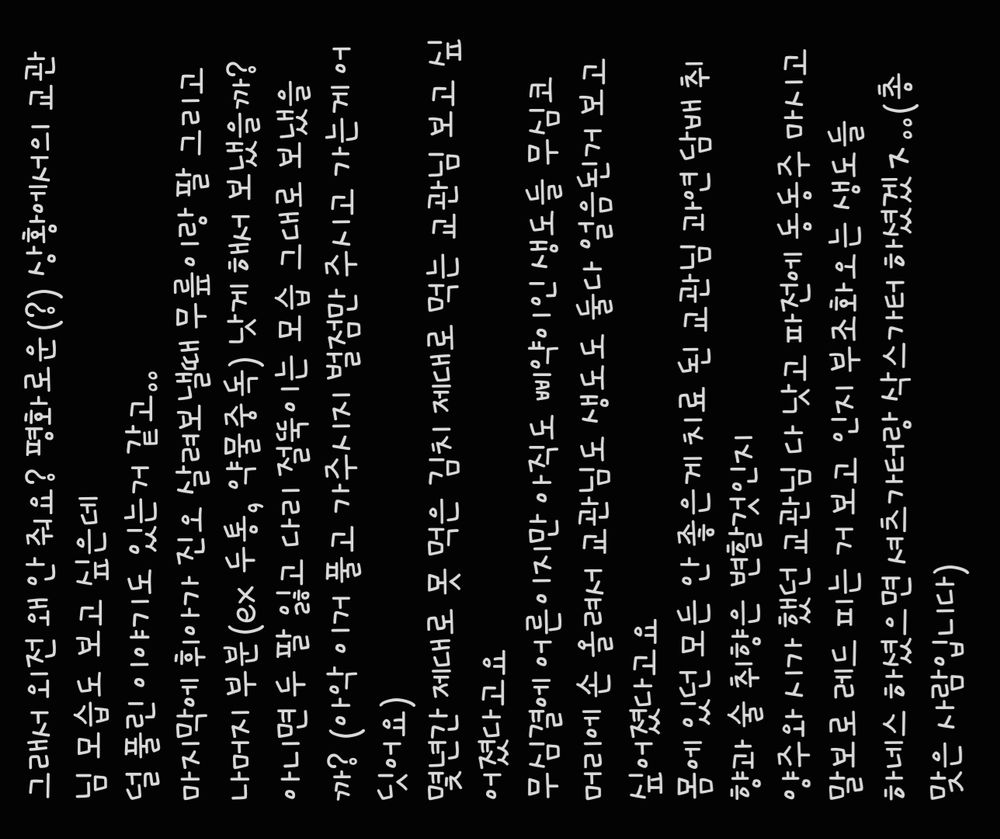 그래서 외전 왜 안 줘요? 평화로운(?) 상황에서의 교관
님 모습도 보고 싶은데
덜 풀린 이야기도 있는거 같고..
마지막에 휘아가 진오 살려보낼때 무릎이랑 팔 그리고
나머지 부분(ex 두통, 약물중독) 낫게 해서 보냈을까?
아니면 두 팔 잃고 다리 절뚝이는 모습 그대로 보냈을
까? (아악 이거 풀고 가주시지 벌점만 주시고 가는게 어
딧어요)
몇년간 제대로 못 먹은 김치 제대로 먹는 교관님 보고 싶
어졌다고요
무심결에 어른이지만 아직도 삐약이인 생도들 무심코
머리에 손 올려서 교관님도 생도도 둘다 얼음된거 보고
싶어졌다고요
몸에 있던 모든 안 좋은게 치료 된 교관님 과연 담배 취
향과 술 취향은 변할것인지
양주와 시가 했던 교관님 다 낫고 파전에 동동주 마시고
말보로 레드 피는 거 보고 인지부조화오는 생도들
하네스 하셨으면 셔츠가터랑 삭스가터 하셨겠ㅈ..(총
맞은 사람입니다)